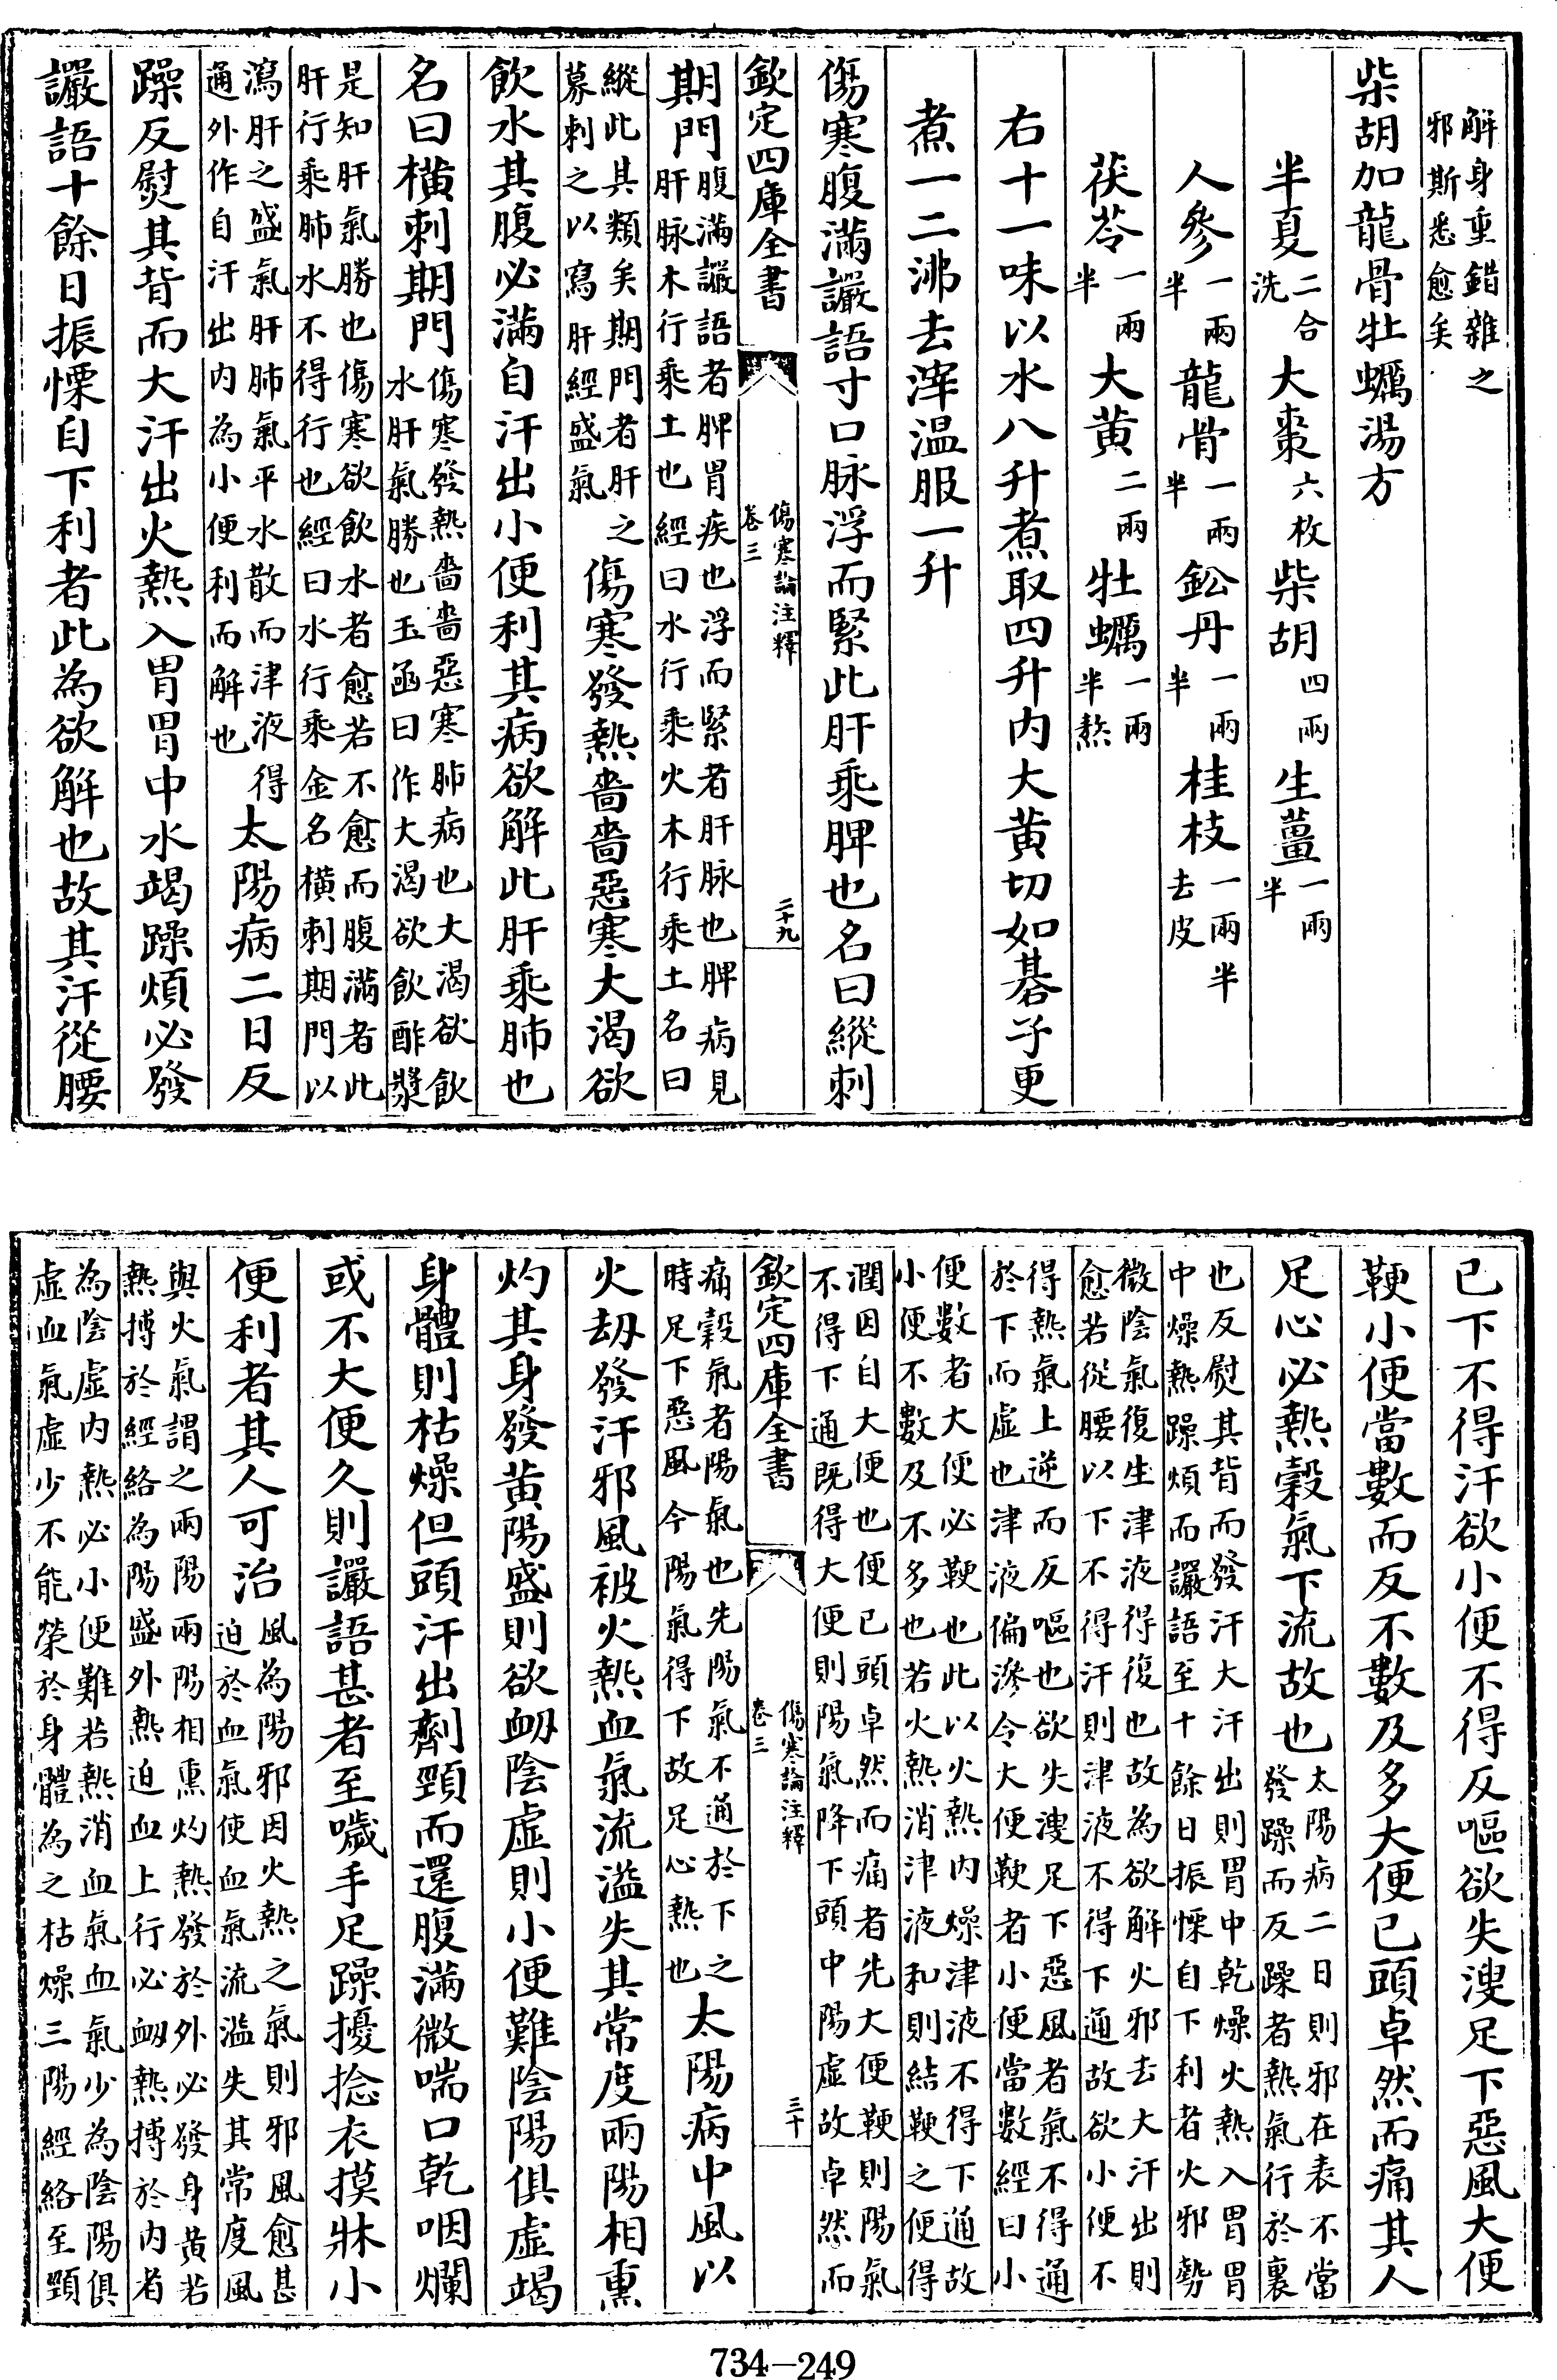 解身重錯雜之
邪斯悉愈矣
柴胡加龍骨牡蠣湯方
半夏二合洗大棗六枚柴胡四兩生薑一兩半
人參一兩半龍骨一兩半鈆丹一兩半桂枝一兩半去皮
茯苓一兩半大黄二兩牡蠣一兩半熬
右十一味以水八升煮取四升内大黄切如碁子更
煮一二沸去滓温服一升
傷寒腹滿讝語寸口脉浮而緊此肝乘脾也名曰縱刺
欽定四庫全書
傷寒論注釋
卷三
二十九
期門腹滿讝語者脾胃疾也浮而緊者肝脉也脾病見
肝脉木行乘土也經曰水行乘火木行乘土名曰
縱此其類矣期門者肝之
募刺之以寫肝經盛氣
傷寒發熱嗇嗇惡寒大渴欲
飲水其腹必滿自汗出小便利其病欲解此肝乘肺也
名曰横刺期門傷寒發熱嗇嗇惡寒肺病也大渴欲飲
水肝氣勝也玉函曰作大渴欲飲酢漿
是知肝氣勝也傷寒欲飲水者愈若不愈而腹滿者此
肝行乘肺水不得行也經曰水行乘金名横刺期門以
瀉肝之盛氣肝肺氣平水散而津液得
通外作自汗出内為小便利而解也
太陽病二日反
躁反熨其背而大汗出火熱入胃胃中水竭躁煩必發
讝語十餘日振慄自下利者此為欲解也故其汗從腰
已下不得汗欲小便不得反嘔欲失溲足下惡風大便
鞕小便當數而反不數及多大便已頭卓然而痛其人
足心必熱穀氣下流故也太陽病二日則邪在表不當
發躁而反躁者熱氣行於裏
也反熨其背而發汗大汗出則胃中乾燥火熱入胃胃
中燥熱躁煩而讝語至十餘日振慄自下利者火邪勢
微陰氣復生津液得復也故為欲解火邪去大汗出則
愈若從腰以下不得汗則津液不得下通故欲小便不
得熱氣上逆而反嘔也欲失溲足下惡風者氣不得通
於下而虚也津液偏滲令大便鞕者小便當數經曰小
便數者大便必鞕也此以火熱内燥津液不得下通故
小便不數及不多也若火熱消津液和則結鞕之便得
潤因自大便也便已頭卓然而痛者先大便鞕則陽氣
不得下通既得大便則陽氣降下頭中陽虚故卓然而
欽定四庫全書
傷寒論注釋
卷三
三十
痛穀氣者陽氣也先陽氣不通於下之
時足下惡風今陽氣得下故足心熱也
太陽病中風以
火刼發汗邪風被火熱血氣流溢失其常度兩陽相熏
灼其身發黄陽盛則欲衂陰虚則小便難陰陽俱虚竭
身體則枯燥但頭汗出劑頸而還腹滿微喘口乾咽爛
或不大便久則讝語甚者至噦手足躁擾捻衣摸牀小
便利者其人可治風為陽邪因火熱之氣則邪風愈甚
迫於血氣使血氣流溢失其常度風
與火氣謂之兩陽兩陽相熏灼熱發於外必發身黄若
熱搏於經絡為陽盛外熱迫血上行必衂熱搏於内者
為陰虚内熱必小便難若熱消血氣血氣少為陰陽俱
虚血氣虚少不能榮於身體為之枯燥三陽經絡至頸
734—249